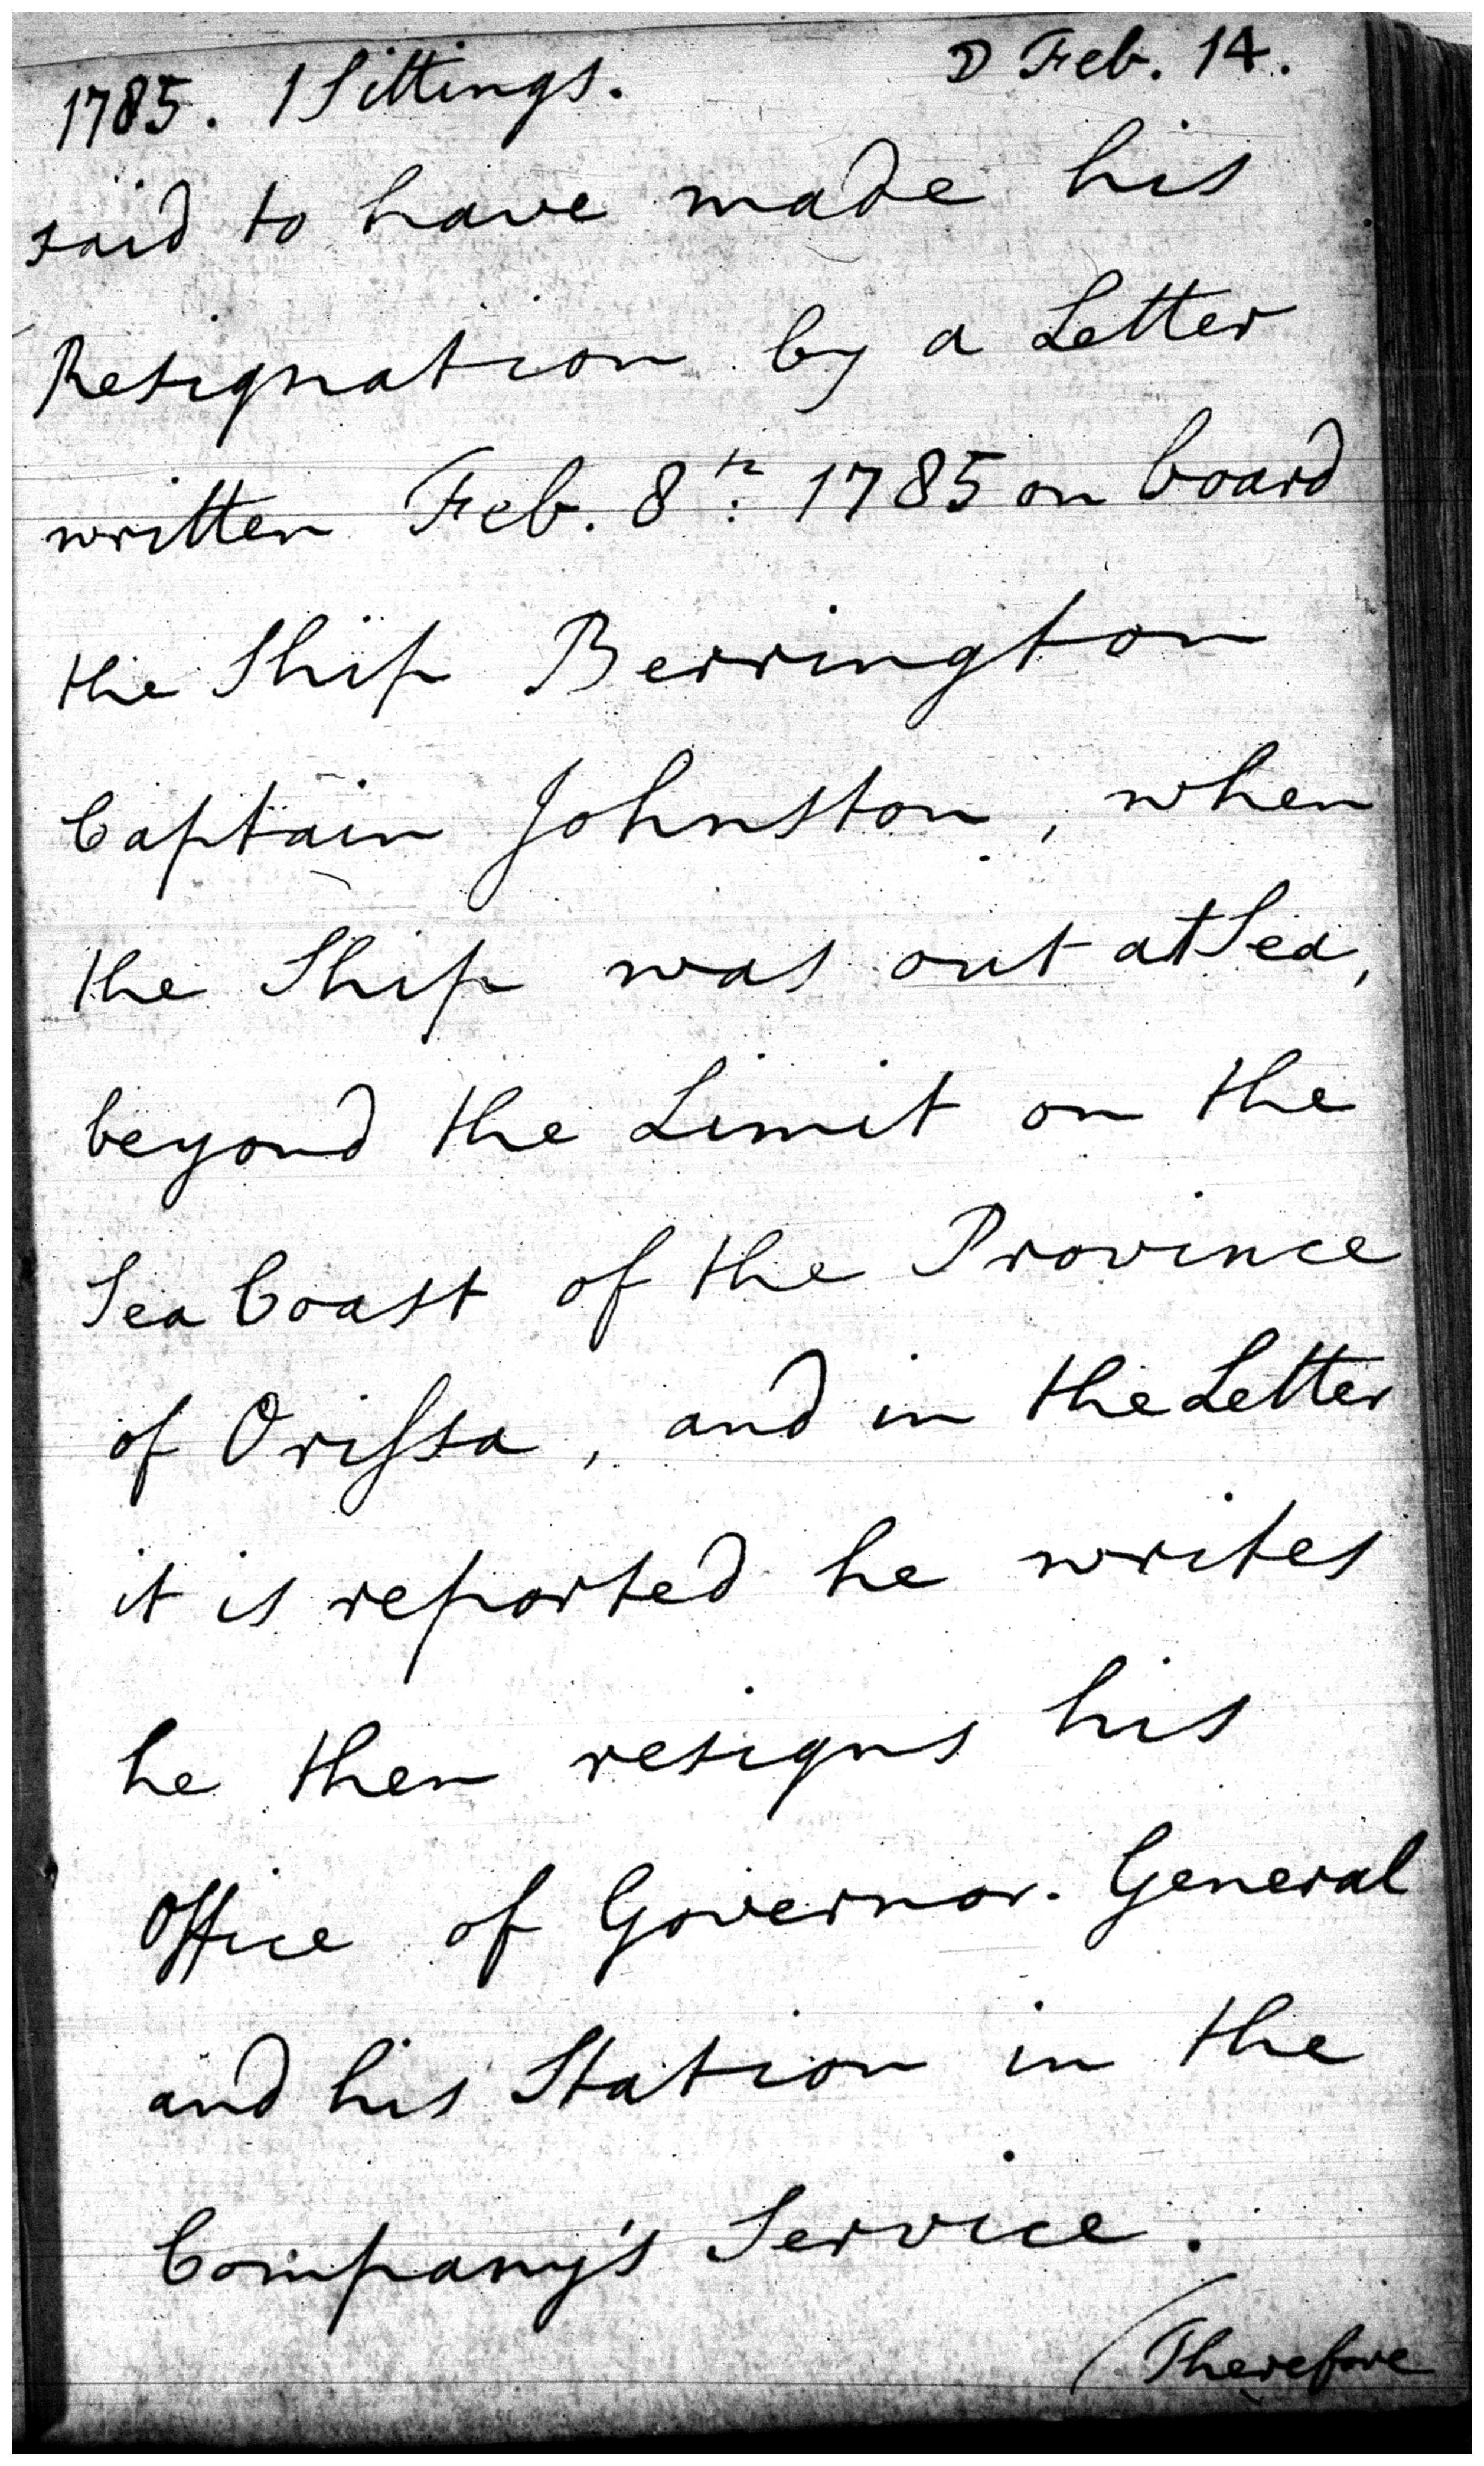 1785. 1 Sittings. ☽ Feb. 14.
said to have made his
Resignation by a Letter
written Feb. 8th: 1785 on board
the Ship Berrington
Captain Johnston, when
the Ship was out at Sea,
beyond the Limit on the
Sea Coast of the Province
of Orifsa, and in the Letter
it is reported he writes
he then resigns his
Office of Governor. General
and his Station in the
Company's Service.
(Therefore